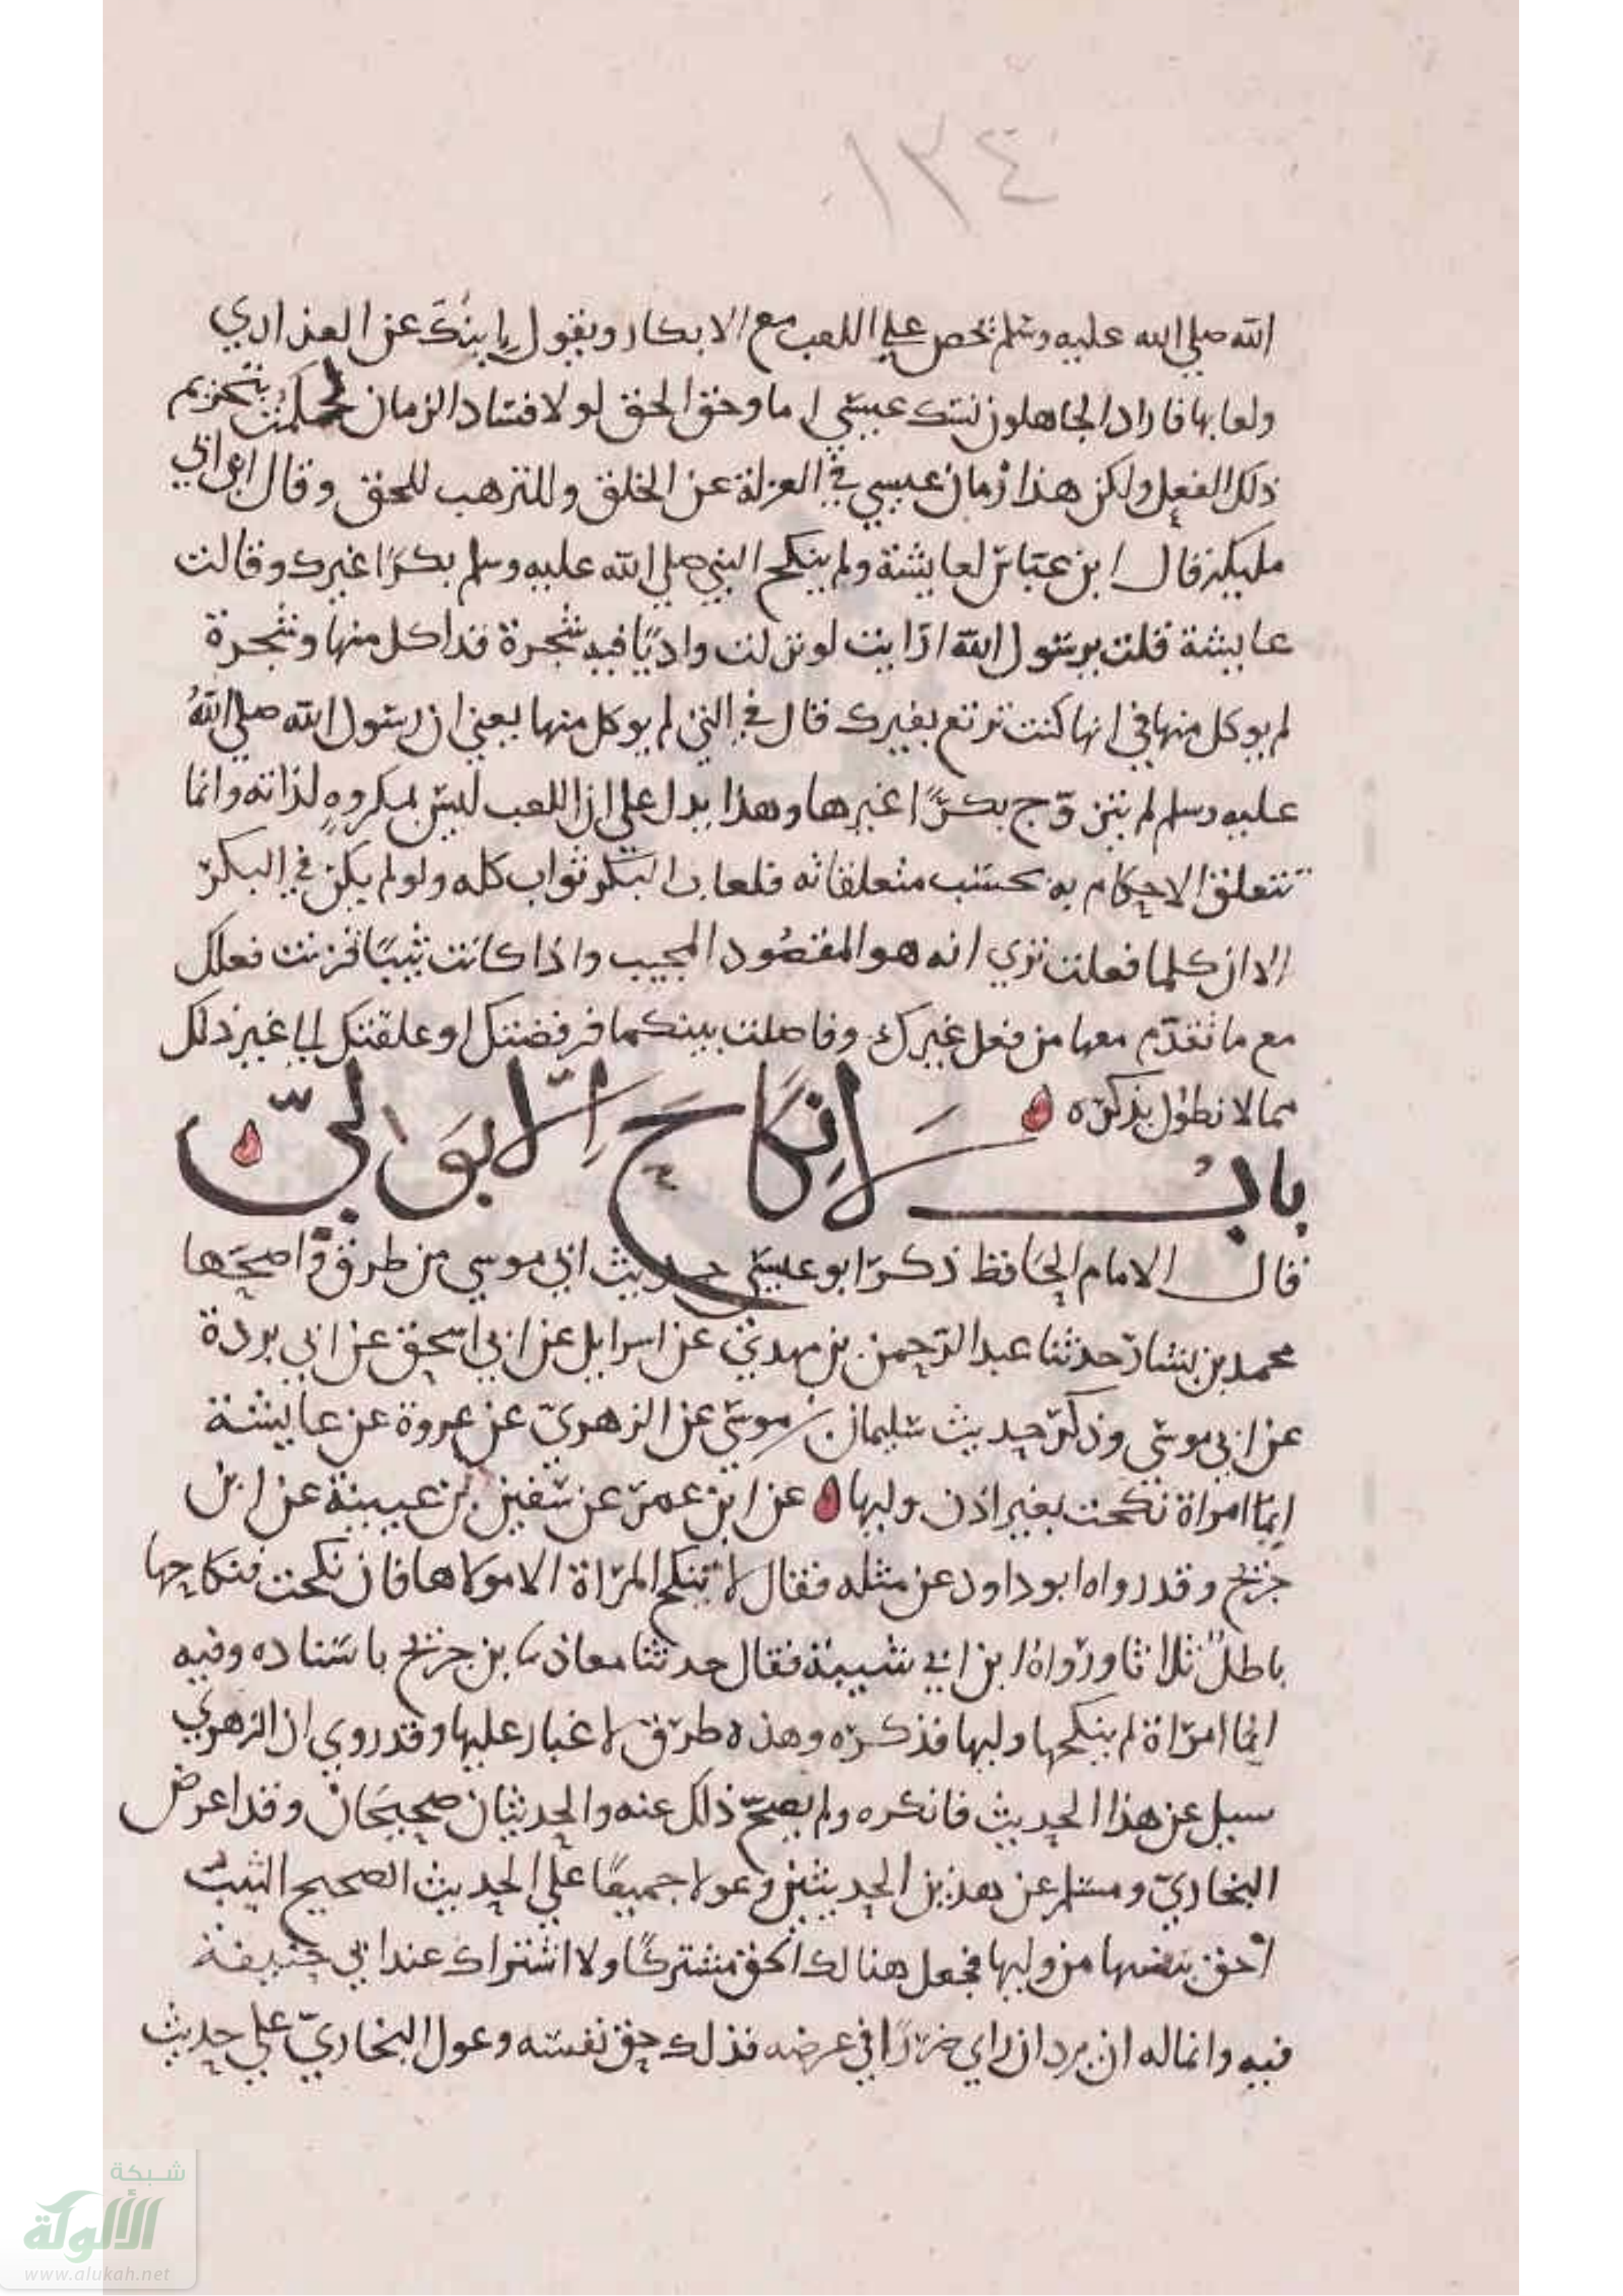 ١٣٤
الله صلي الله عليه وسلم يحض علي اللعب مع الابكار ويقول اين انت عن العذاري
ولعابها فاراد الجاهلون نسك عيسي اما وحق الحق لولا فساد الزمان لحكمت بتحريم
ذلك الفعل ولكن هذا زمان عيسي في العزلة عن الخلق والترهب للحق وقال ابن ابي
مليكة قال ابن عباس لعايشة ولم ينكح النبي صلي الله عليه وسلم بكرا غيرك وقالت
عايشة قلت يرسول الله ارايت لو نزلت واديا فيه شجرة قد اكل منها وشجرة
لم يوكل منها في ايها كنت ترتع بعيرك قال في التي لم يوكل منها يعني ان رسول الله صلي الله
عليه وسلم لم يتزوج بكرا غيرها وهذا يدل علي ان اللعب ليس بمكروه لذاته وانما
تتعلق الاحكام به بحسب متعلقاته فلعاب البكر ثواب كله ولو لم يكن في البكر
الا ان كلما فعلت تري انه هو المقصود المجيب واذا كانت ثيبا قرنت فعلك
مع ما تقدم معها من فعل غيرك وفاصلت بينكما فرفضتك او علقتك الي غير ذلك
مما لا نطول بذكره
باب لا نكاح الا بولي
قال الامام الحافظ ذكر ابو عيسي حديث ابي موسي من طرق واصحها
محمد بن بشار حدثنا عبد الرحمن بن مهدي عن اسرايل عن ابي اسحق عن ابي بردة
عن ابي موسي وذكر حديث سليمان بن موسي عن الزهري عن عروة عن عايشة
ايما امراة نكحت بغير اذن وليها عن ابن عمر عن سفين بن عيينة عن ابن
جريج وقد رواه ابو داود عن مثله فقال لا تنكح المراة الا مولاها فان نكحت فنكاحها
باطل ثلاثا ورواه ابن ابي شيبة فقال حدثنا معاذ بن جريج باسناده وفيه
ايما امراة لم ينكحها وليها فذكره وهذه طرق لا غبار عليها وقد روي ان الزهري
سيل عن هذا الحديث فانكره ولم يصح ذلك عنه والحديثان صحيحان وقد اعرض
البخاري ومسلم عن هذين الحديثين وعولا جميعا علي الحديث الصحيح الثيب
احق بنفسها من وليها فجعل هنالك الحق مشتركا ولا اشتراك عند ابي حنيفة
فيه وانما له ان يرد ان راي ضررا في عرضه فذلك حق نفسه وعول البخاري علي حديث
شبكة
الألوكة
www.alukah.net